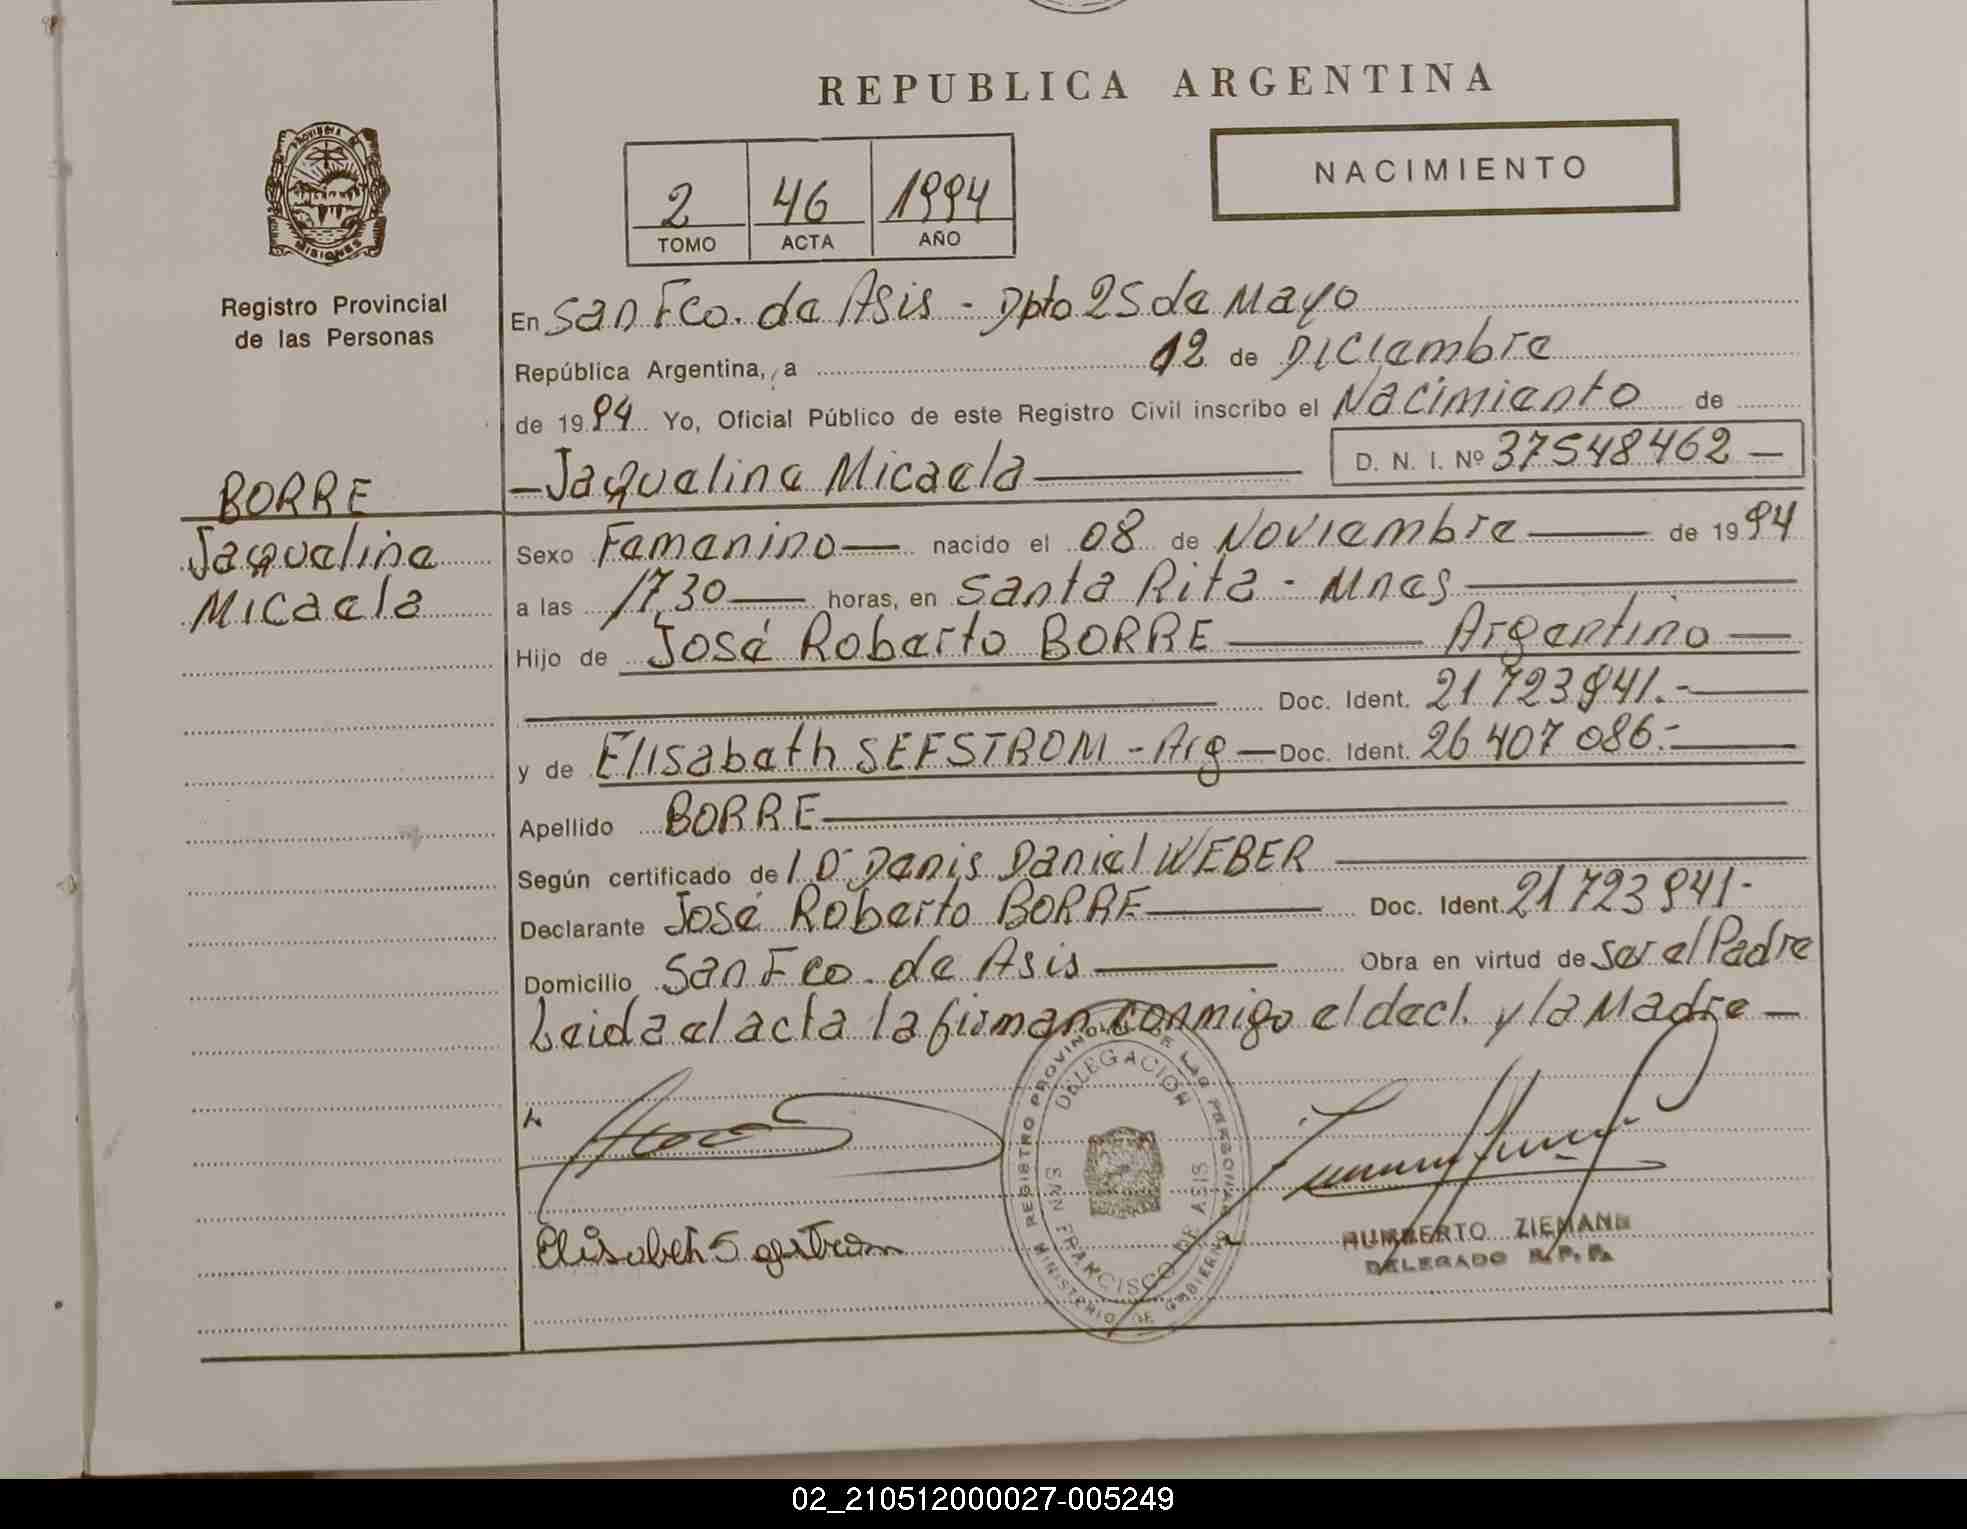 REPUBLICA ARGENTINA
PROVINCIA DE
MISIONES
Registro Provincial
de las Personas
2 46 1994
TOMO ACTA AÑO
NACIMIENTO
En San Fco. de Asis - Dpto 25 de Mayo
República Argentina, a 12 de Diciembre
de 1994 Yo, Oficial Público de este Registro Civil inscribo el Nacimiento de
- Jaqueline Micaela D. N. I. Nº 37548462 -
BORRE
Jaqueline
Micaela
Sexo Femenino nacido el 08 de Noviembre de 1994
a las 17,30 horas, en Santa Rita - Mnes
Hijo de José Roberto BORRE Argentino
Doc. Ident. 21 723 941.-
y de Elisabeth SEFSTROM - Arg - Doc. Ident. 26 407 086.-
Apellido BORRE
Según certificado de l Dr Denis Daniel WEBER
Declarante José Roberto BORRE Doc. Ident. 21 723 941-
Domicilio San Fco. de Asis Obra en virtud de Ser el Padre
Leida el acta la firman conmigo el decl. y la Madre -
REGISTRO PROVINCIAL DE LAS PERSONAS
DELEGACION
SAN FRANCISCO DE ASIS
MINISTERIO DE GOBIERNO
Elisabeth
HUMBERTO ZIEMANN
DELEGADO R. P. P.
02_210512000027-005249